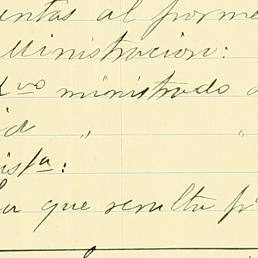 entas al forme
Ministracion:
d.vo ministrado
id " "
ista:
La que resulta p